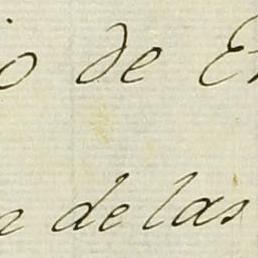 o de E
de las